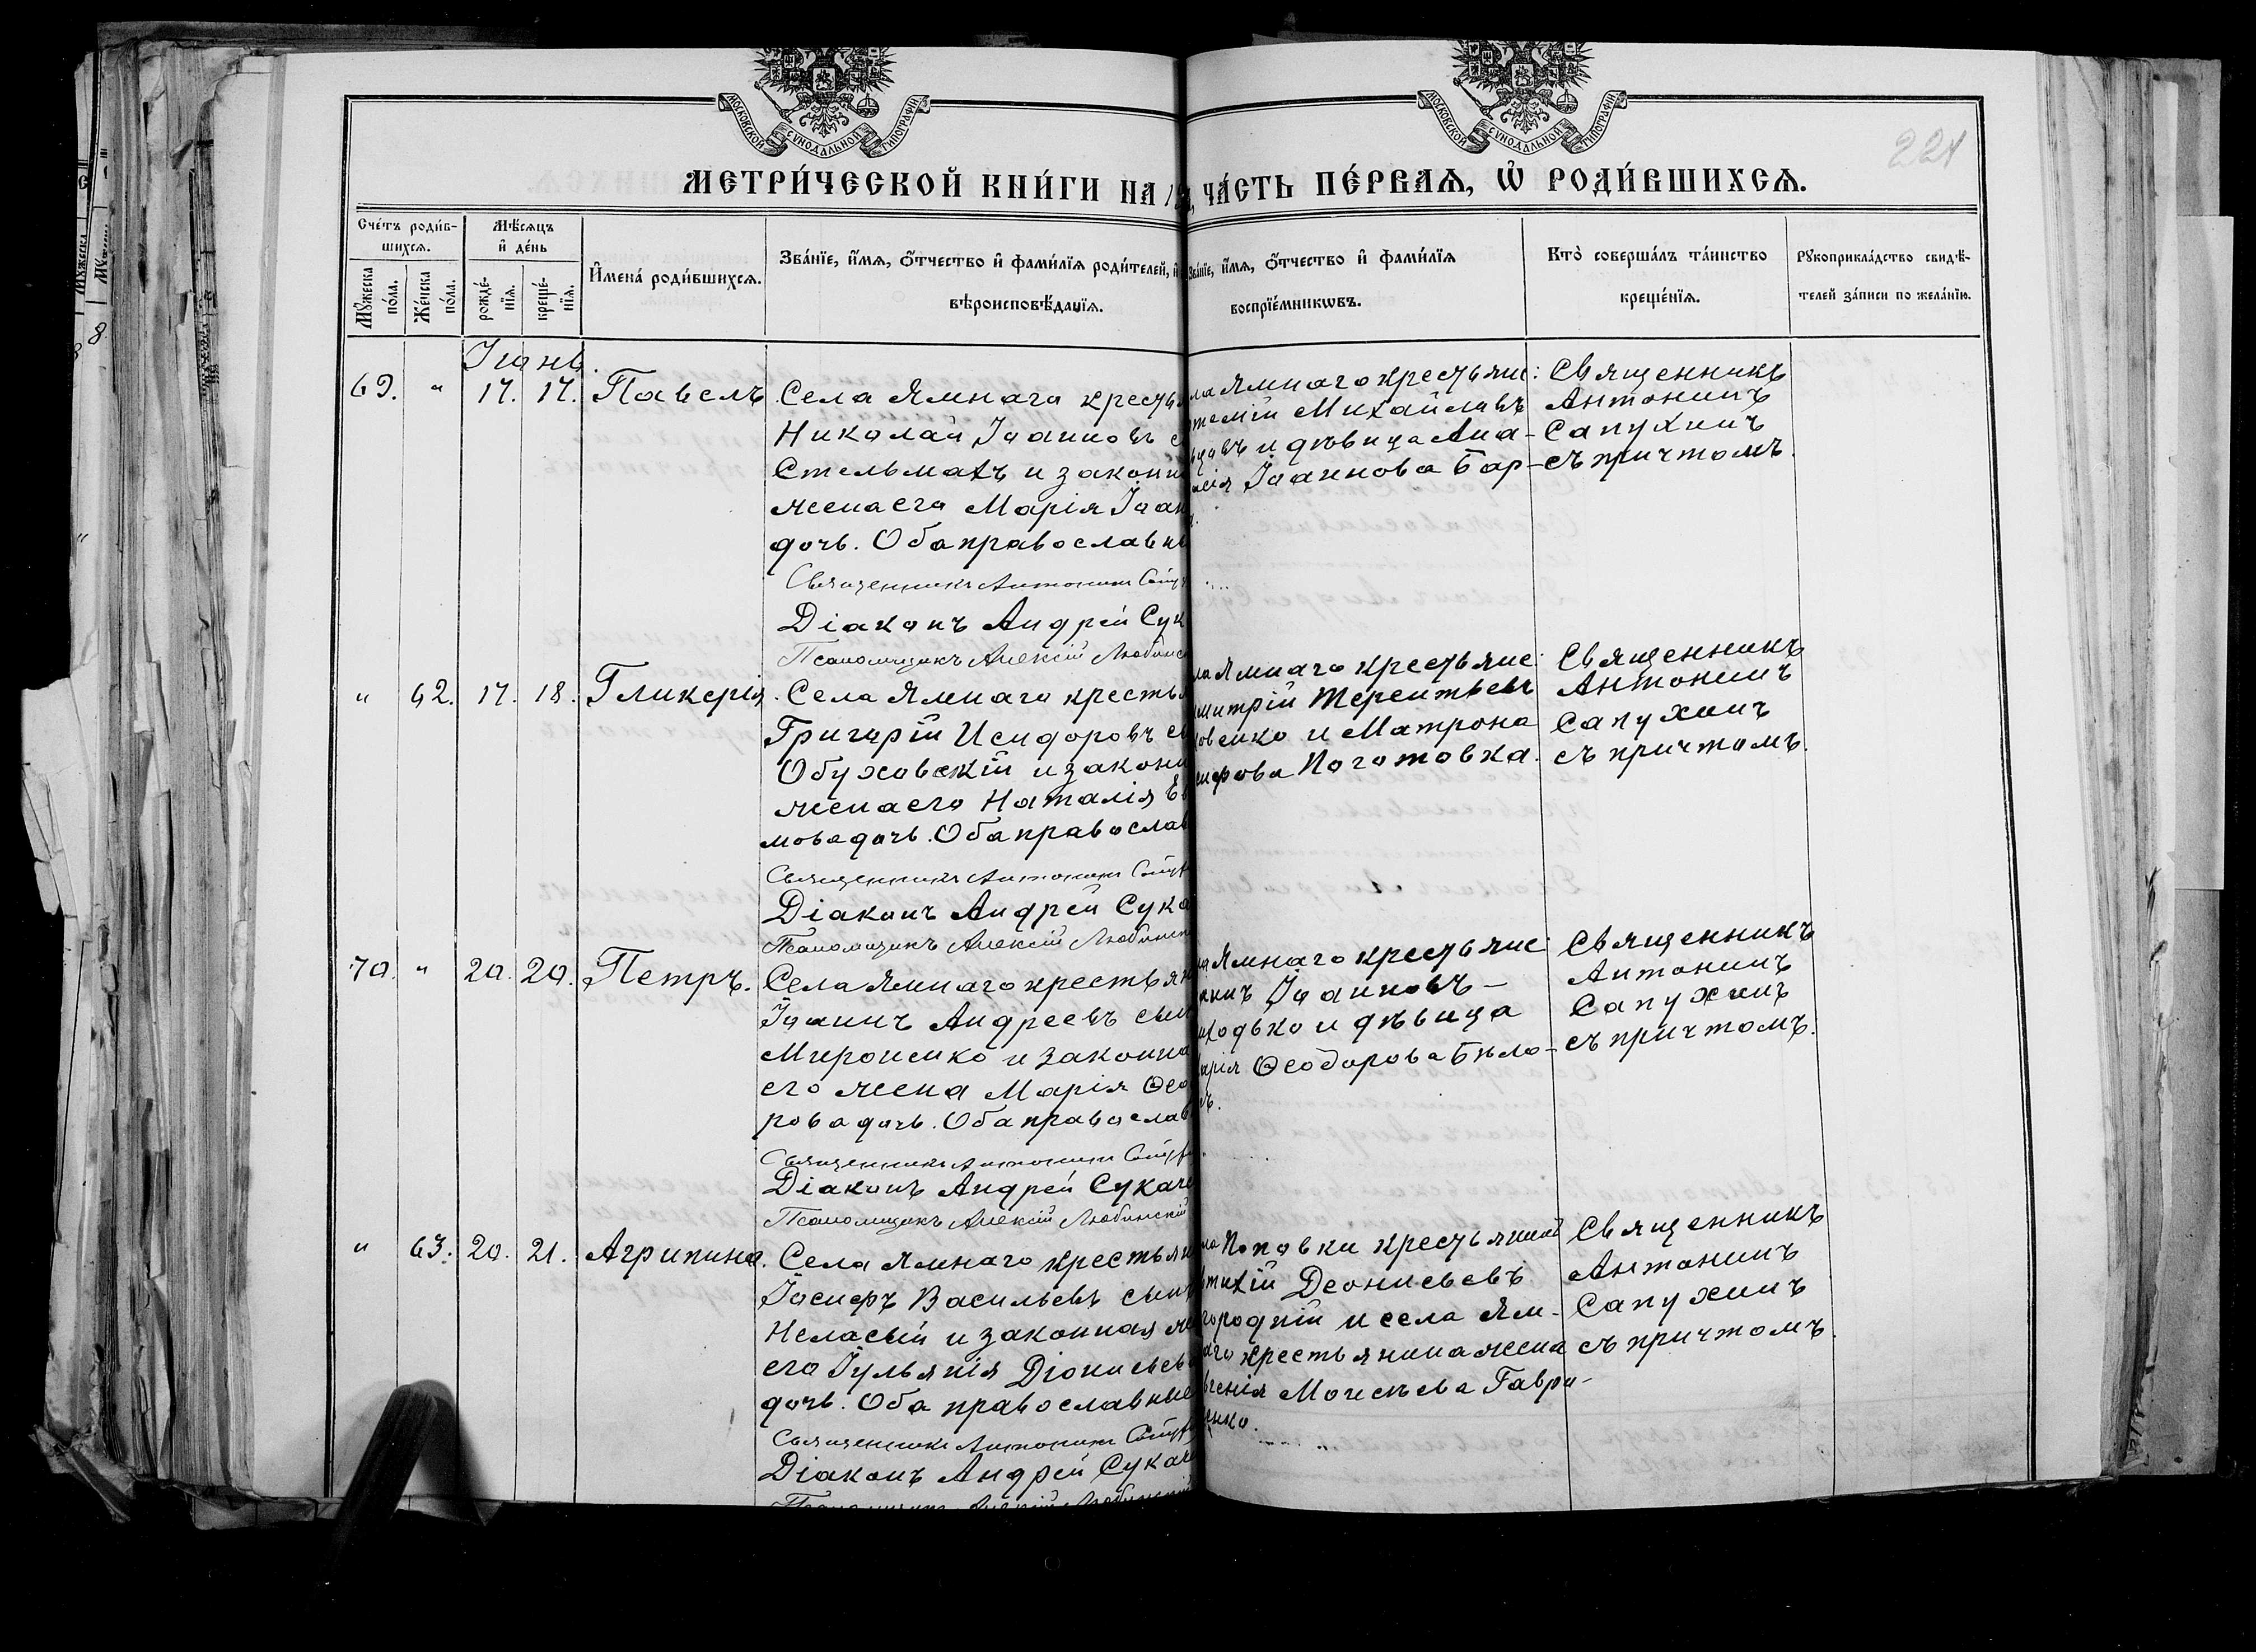 МОСКОВСКОЙ СѴНОДАЛЬНОЙ ТИПОГРАФІИ
МОСКОВСКОЙ СѴНОДАЛЬНОЙ ТИПОГРАФІИ
221
МЕТРИ́ЧЕСКОЙ КНИ́ГИ НА
ЧА́СТЬ ПЕ́РВАЯ, Ѡ РОДИ́ВШИХСЯ.
Сче́тъ роди́в-
шихся.
Мꙋ́жеска
по́ла.
Же́нска
по́ла.
Мѣ́сяцъ
и҆ де́нь
рожде́-
нїя.
креще́-
нїя.
И҆мена̀ роди́вшихся.
Зва́нїе, и҆́мя, ѻ҆́тчество и҆ фами́лїя роди́телей, и҆
вѣроисповѣ́данїя.
Зва́нїе, и҆́мя, ѻ҆́тчество и҆ фами́лїя
воспрїе́мникѡвъ.
Кто̀ соверша́лъ та́инство
креще́нїя.
Рꙋкоприкла́дство свидѣ́-
телей за́писи по жела́нїю.
Іюнь.
69. " 17. 17. Павелъ
Села Ямнаго кресть
Николай Іоанновъ
Стельмахъ и законн
жена его Марія Іоан
дочь. Оба православн
Священникъ Антонинъ
Діаконъ Андрей Сук
Псаломщикъ Алексій Любинс
ла Ямнаго крестьяне:
Михайловъ
и дѣвица Ана-
сія Іоаннова Бар-
Священникъ
Антонинъ
Сапухинъ
съ причтомъ.
" 62. 17. 18. Гликерія.
Села Ямнаго кресть
Григорій Исидоровъ
Обуховскій и законн
жена его Наталія Е
мова дочь. Оба православ
Священникъ Антонинъ
Діаконъ Андрей Сука
Псаломщикъ Алексій Любинск
ла Ямнаго крестьяне:
митрій Терентьевъ
венко и Матрона
Поготовка.
Священникъ
Антонинъ
Сапухинъ
съ причтомъ.
70. " 20. 20. Петръ.
Села Ямнаго крестьян
Іоаннъ Андреевъ сын
Мироненко и законна
его жена Марія Ѳео
рова дочь. Оба православ
Священникъ Антонинъ
Діаконъ Андрей Сукаче
Псаломщикъ Алексій Любинскій
ла Ямнаго крестьяне:
Іоанновъ
ходько и дѣвица
арія Ѳеодорова Бѣло-
Священникъ
Антонинъ
Сапухинъ
съ причтомъ.
" 63. 20. 21. Агрипина.
Села Ямнаго крестьян
Іосифъ Васильевъ сынъ
и законная же
его Іульянія Діонисьев
дочь. Оба православные
Священникъ Антонинъ
Діаконъ Андрей Сукаче
Псаломщикъ Алексій Любинскій
ла Поповки крестьянинъ
Деонисьевъ
городній и села Ям-
наго крестьянина жена
Моисѣева Гаври-
енко.
Священникъ
Антонинъ
Сапухинъ
съ причтомъ.